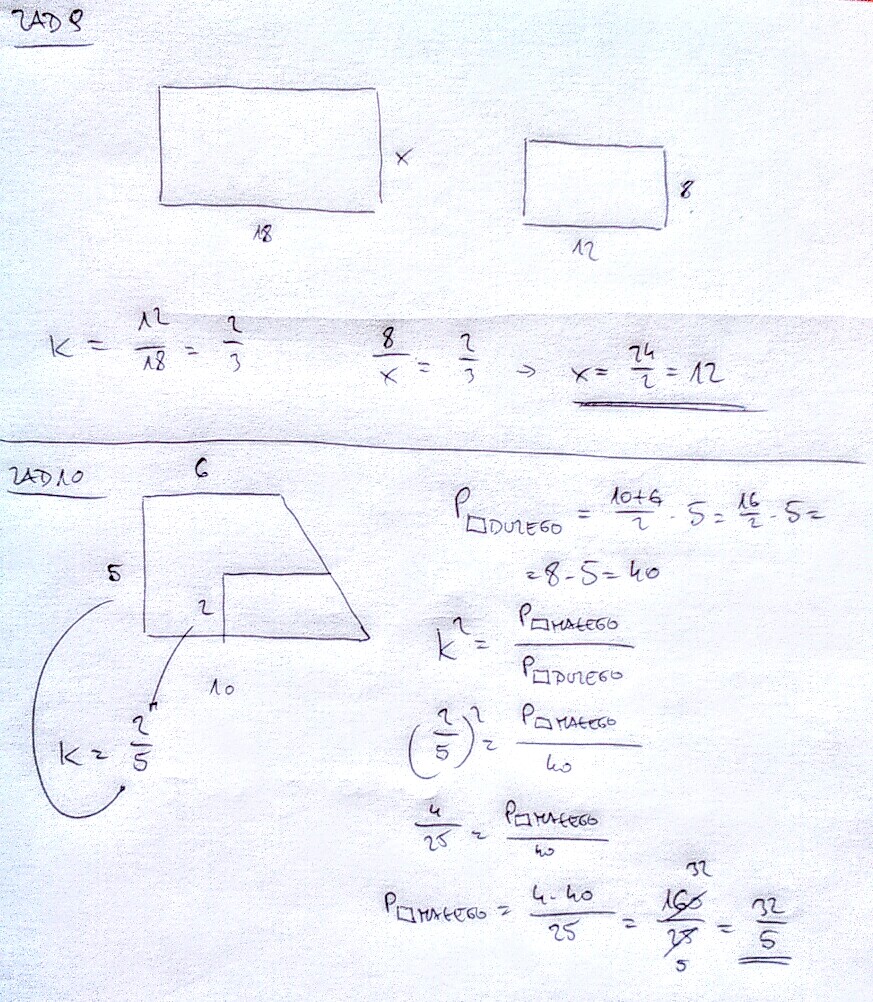 ZAD 9
x
18
8
12
K = 12/18 = 2/3
8/x = 2/3 → x = 24/2 = 12
ZAD 10
6
5
2
10
K = 2/5
P□DUŻEGO = 10+6/2 · 5 = 16/2 · 5 =
= 8 · 5 = 40
K² = P□MAŁEGO/P□DUŻEGO
(2/5)² = P□MAŁEGO/40
4/25 = P□MAŁEGO/40
P□MAŁEGO = 4·40/25 = 160/25 = 32/5
32
5